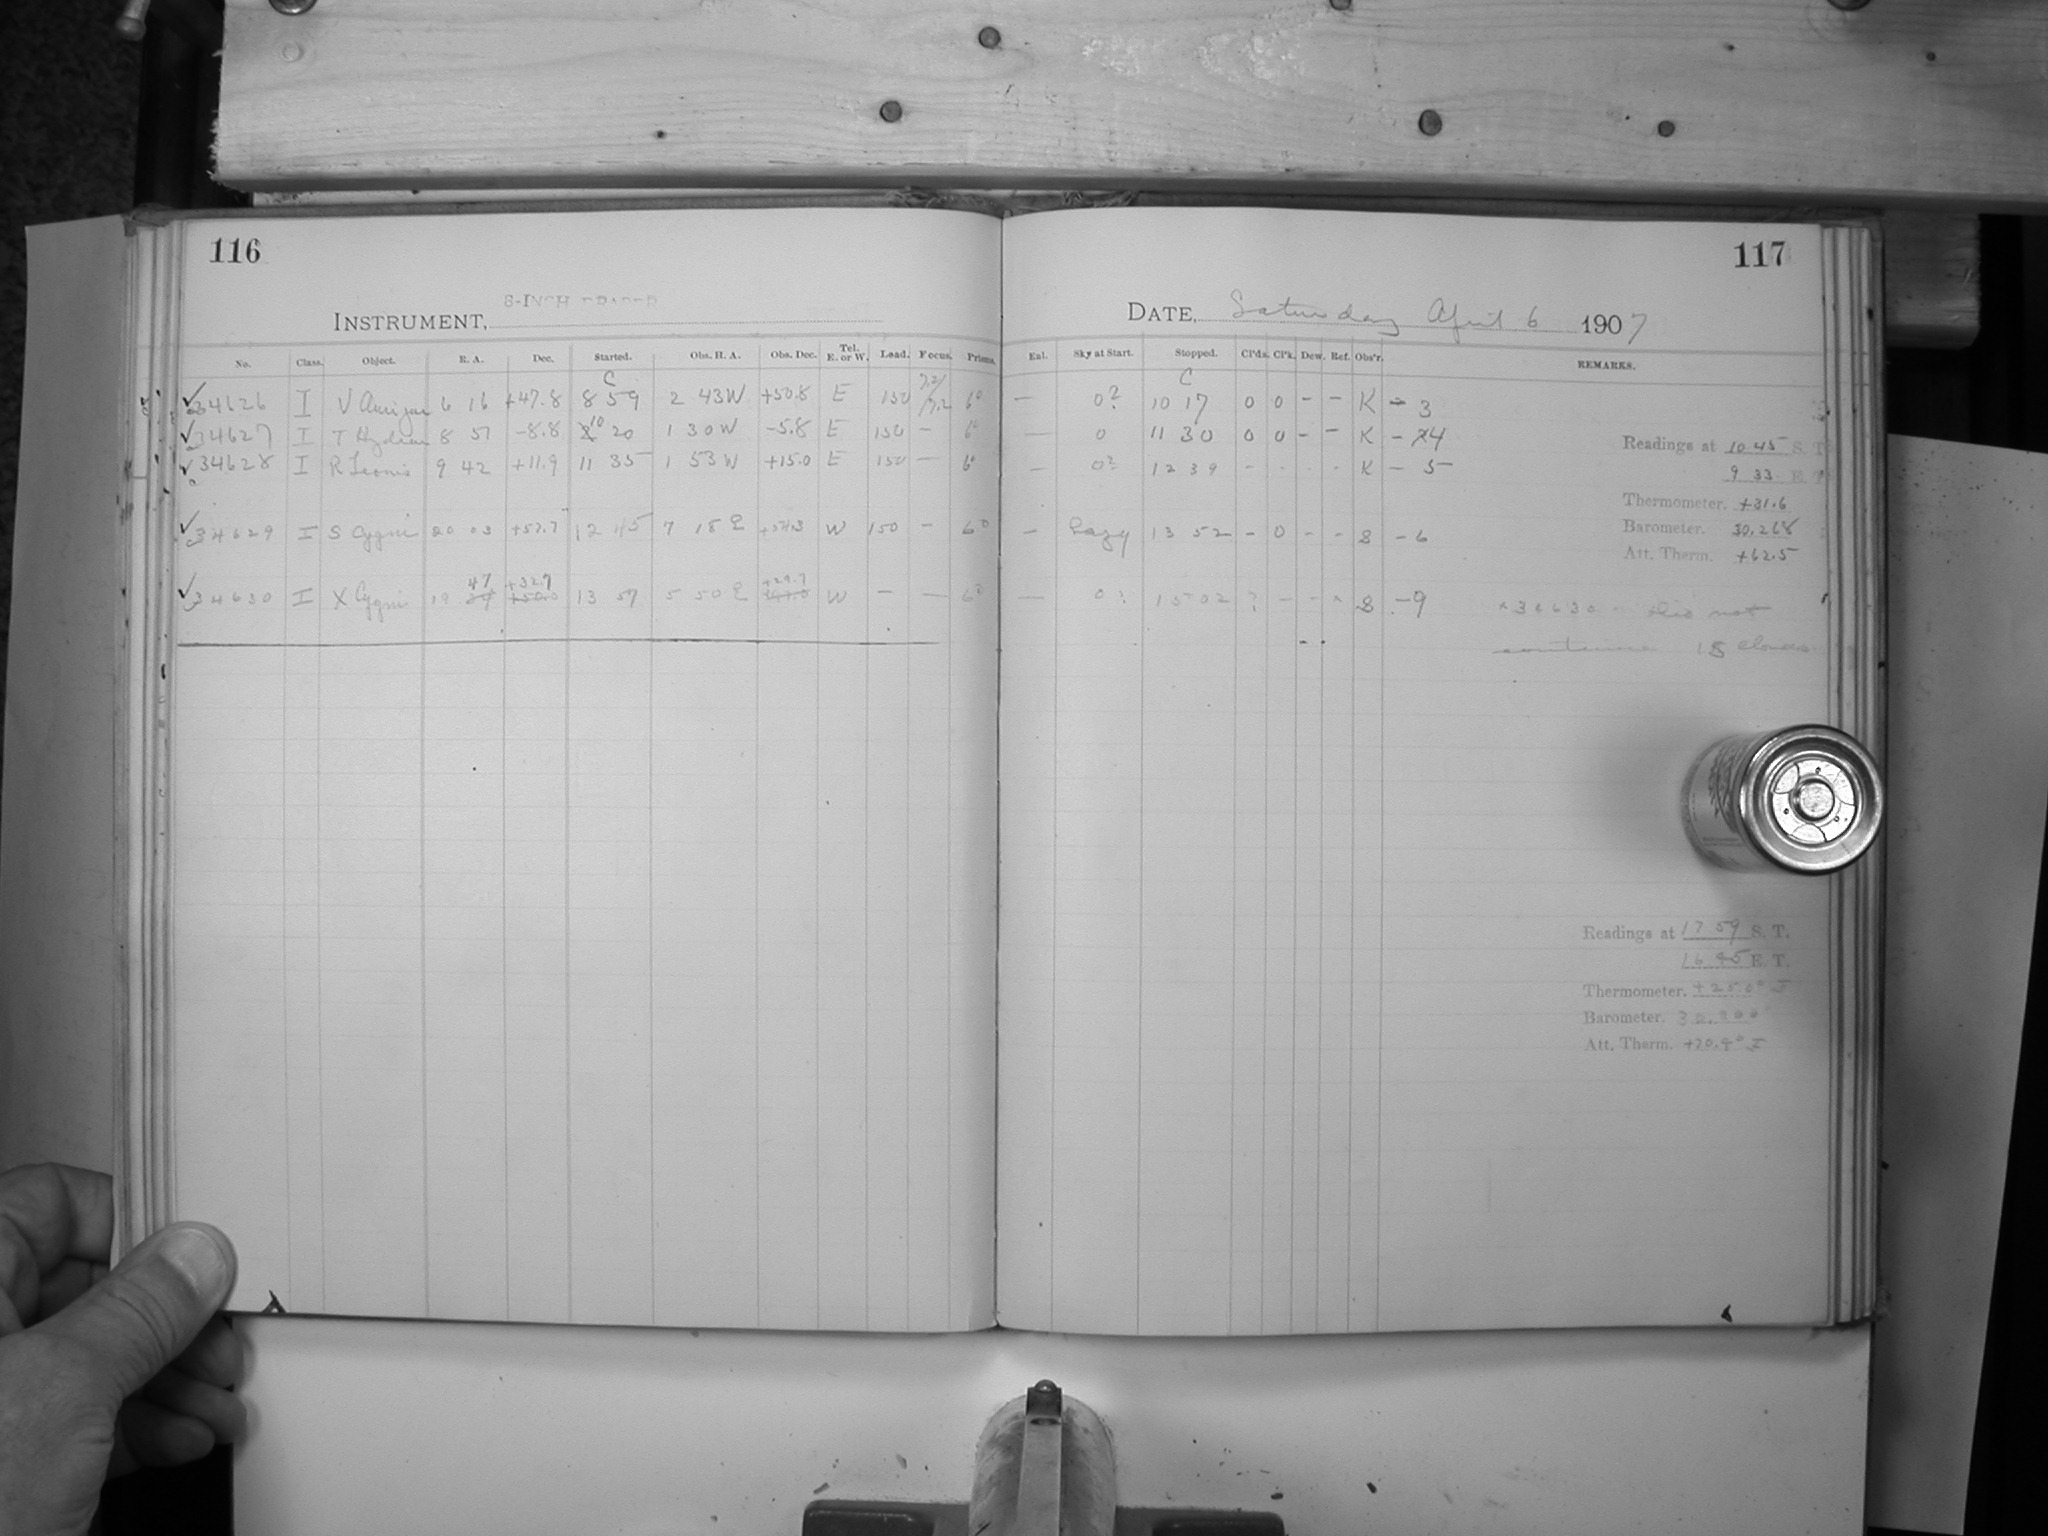 116
8-INCH DRAPER
INSTRUMENT,
No. Class. Object. R. A. Dec. Started. Obs. H. A. Obs. Dec. Tel. E. or W. Load. Focus. Prisms.
C
34626 I V Aurigae 6 16 +47.8 8 59 2 43W +50.8 E 150 7.2/7.2 6°
34627 I T Hydrae 8 51 -8.8 10 20 1 30W -5.8 E 150 - 6°
34628 I R Leonis 9 42 +11.9 11 35 1 53W +15.0 E 150 - 6°
34629 I S Cygni 20 03 +57.7 12 45 7 18 E W 150 - 6°
47 +32.7 +29.7
34630 I X Cygni 19 13 57 5 50 E W - - 6°
117
DATE, Saturday April 6 1907
Enl. Sky at Start. Stopped. Cl'ds. Cl'k. Dew. Ref. Obs'r. REMARKS.
C
- 0? 10 17 0 0 - - K - 3
- 0 11 30 0 0 - - K - 4
- 0? 12 39 - - - - K - 5
- Hazy 13 52 - 0 - - S - 6
- 0? 15 02 ? - - - S - 9
Readings at 10 45 S. T.
9 33 E. T.
Thermometer. +31.6
Barometer. 30.268
Att. Therm. +62.5
34630 did not
continue clouds
Readings at 17 59 S. T.
16 45 E. T.
Thermometer. +25.0°
Barometer.
Att. Therm. +70.4°